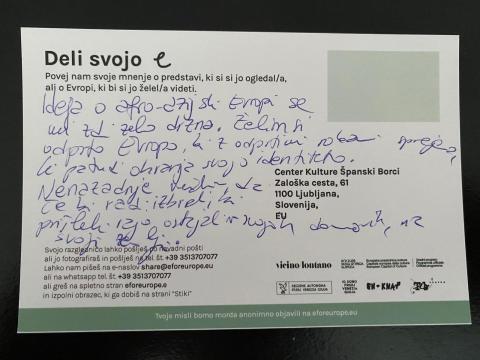 Deli svojo e
Povej nam svoje mnenje o predstavi, ki si si jo ogledal/a,
ali o Evropi, ki bi si jo želel/a videti.
Ideja o afro-azijski Evropi se
mi zdi zelo drzna. Želim si
odprto Evropo, ki z odprtimi rokami sprejema,
ki pa tudi ohranja svojo identiteto.
Nenazadnje
če bi radi izbrali, bi
ostajali v svojih domovih, na
svoji
Center Kulture Španski Borci
Zaloška cesta, 61
1100 Ljubljana,
Slovenija,
EU
Svojo razglednico lahko pošlješ po navadni pošti
ali jo fotografiraš in pošlješ na tel.št +39 3513707077
Lahko nam pišeš na e-naslov share@eforeurope.eu
ali na whatsapp tel. št +39 3513707077
ali greš na spletno stran eforeurope.e
in izpolni obrazec, ki ga dobiš na strani "Stiki"
vicino/lontano
REGIONE AUTONOMA
FRIULI VENEZIA GIULIA
EN-KNAP
Tvoje misli bomo morda anonimno objavili na eforeurope.eu